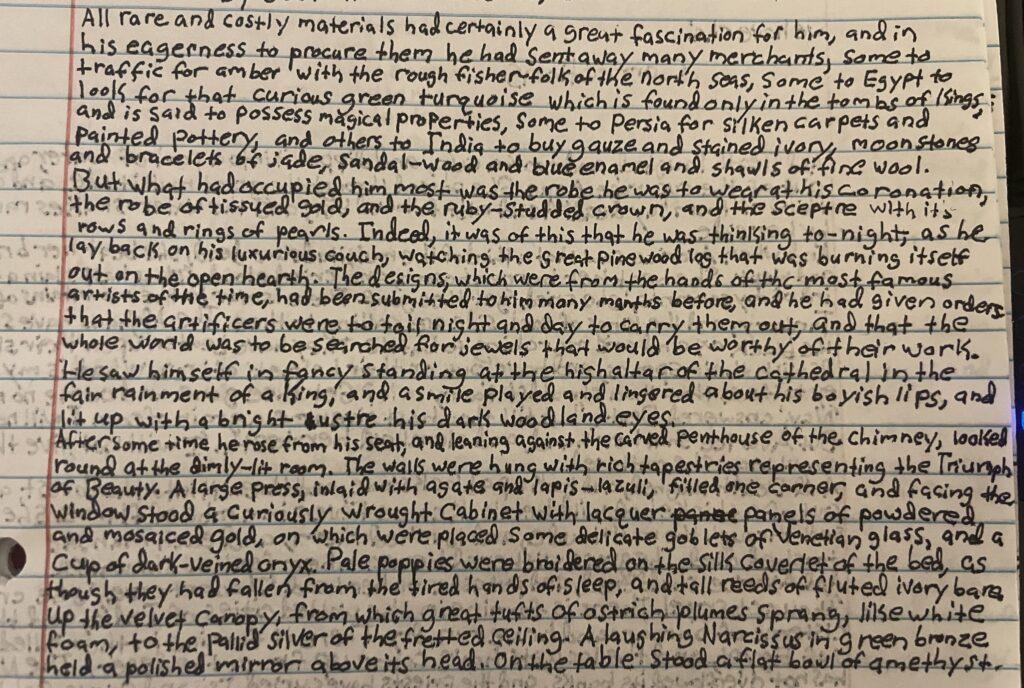 All rare and costly materials had certainly a great fascination for him, and in
his eagerness to procure them he had sent away many merchants, some to
traffic for amber with the rough fisher-folk of the north seas, some to Egypt to
look for that curious green turquoise which is found only in the tombs of kings,
and is said to possess magical properties, some to Persia for silken carpets and
painted pottery, and others to India to buy gauze and stained ivory, moonstones
and bracelets of jade, sandal-wood and blue enamel and shawls of fine wool.
But what had occupied him most was the robe he was to wear at his coronation,
the robe of tissued gold, and the ruby-studded crown, and the sceptre with its
rows and rings of pearls. Indeed, it was of this that he was thinking to-night, as he
lay back on his luxurious couch, watching the great pinewood log that was burning itself
out on the open hearth. The designs, which were from the hands of the most famous
artists of the time, had been submitted to him many months before, and he had given orders
that the artificers were to toil night and day to carry them out, and that the
whole world was to be searched for jewels that would be worthy of their work.
He saw himself in fancy standing at the high altar of the cathedral in the
fair rainment of a King, and a smile played and lingered about his boyish lips, and
lit up with a bright lustre his dark woodland eyes.
After some time he rose from his seat, and leaning against the carved penthouse of the chimney, looked
round at the dimly-lit room. The walls were hung with rich tapestries representing the Triumph
of Beauty. A large press, inlaid with agate and lapis-lazuli, filled one corner, and facing the
window stood a curiously wrought cabinet with lacquer panels of powdered
and mosaiced gold, on which were placed some delicate goblets of Venetian glass, and a
cup of dark-veined onyx. Pale poppies were broidered on the silk coverlet of the bed, as
though they had fallen from the tired hands of sleep, and tall reeds of fluted ivory bare
up the velvet canopy, from which great tufts of ostrich plumes sprang, like white
foam, to the pallid silver of the fretted ceiling. A laughing Narcissus in green bronze
held a polished mirror above its head. On the table stood a flat bowl of amethyst.